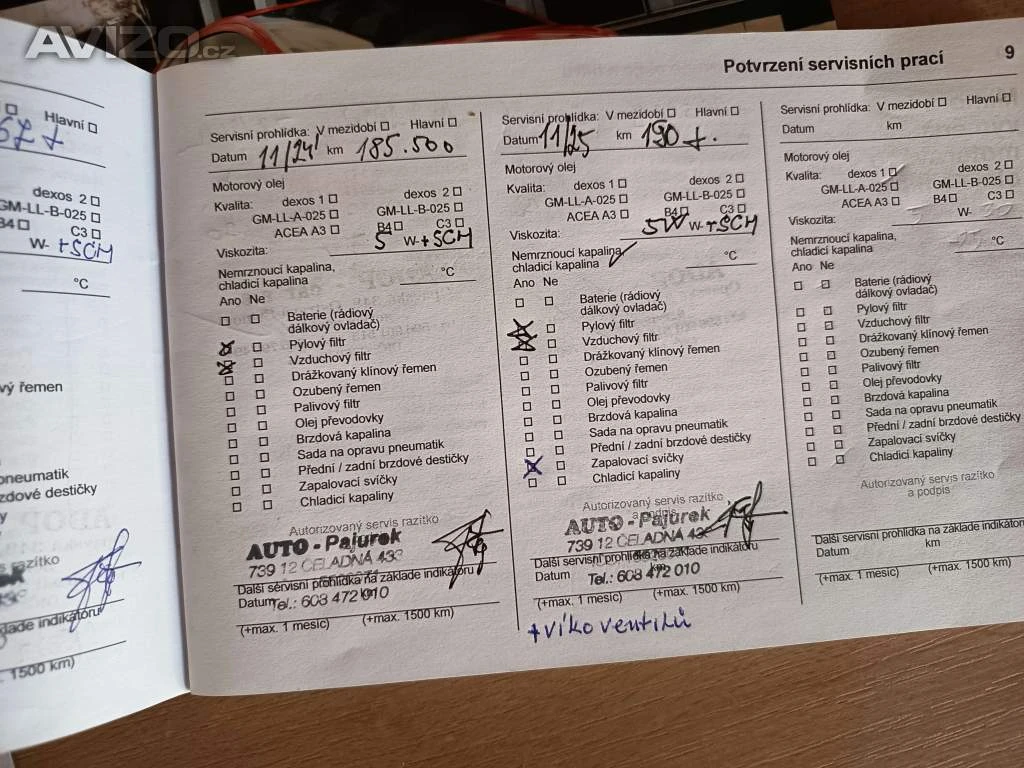 AVIZO.cz
Potvrzení servisních prací 9
Hlavní
67 t
dexos 2
GM-LL-B-025
B4 C3
W- + SCH
°C
vý řemen
pneumatik
zdové destičky
razítko
klade indikátoru
1500 km)
Servisní prohlídka: V mezidobí Hlavní
Datum 11/24 km 185.500
Motorový olej
Kvalita: dexos 1 dexos 2
GM-LL-A-025 GM-LL-B-025
ACEA A3 B4 C3
Viskozita: 5 W- + SCH
Nemrznoucí kapalina,
chladicí kapalina °C
Ano Ne
Baterie (rádiový
dálkový ovladač)
Pylový filtr
Vzduchový filtr
Drážkovaný klínový řemen
Ozubený řemen
Palivový filtr
Olej převodovky
Brzdová kapalina
Sada na opravu pneumatik
Přední / zadní brzdové destičky
Zapalovací svíčky
Chladicí kapaliny
Autorizovaný servis razítko
AUTO - Pajurek
739 12 ČELADNÁ 433
Další servisní prohlídka na základe indikátoru
Datum km
Tel.: 608 472 010
(+max. 1 mesíc) (+max. 1500 km)
Servisní prohlídka: V mezidobí Hlavní
Datum 11/25 km 190 t.
Motorový olej
Kvalita: dexos 1 dexos 2
GM-LL-A-025 GM-LL-B-025
ACEA A3 B4 C3
Viskozita: 5W W- + SCH
Nemrznoucí kapalina,
chladicí kapalina °C
Ano Ne
Baterie (rádiový
dálkový ovladač)
Pylový filtr
Vzduchový filtr
Drážkovaný klínový řemen
Ozubený řemen
Palivový filtr
Olej převodovky
Brzdová kapalina
Sada na opravu pneumatik
Přední / zadní brzdové destičky
Zapalovací svíčky
Chladicí kapaliny
Autorizovaný servis razítko
a podpis
AUTO - Pajurek
739 12 ČELADNÁ 433
Další servisní prohlídka na základe indikátoru
Datum km
Tel.: 608 472 010
(+max. 1 mesíc) (+max. 1500 km)
+ víko ventilů
Servisní prohlídka: V mezidobí Hlavní
Datum km
Motorový olej
Kvalita: dexos 1 dexos 2
GM-LL-A-025 GM-LL-B-025
ACEA A3 B4 C3
Viskozita: W-
Nemrznoucí kapalina,
chladicí kapalina °C
Ano Ne
Baterie (rádiový
dálkový ovladač)
Pylový filtr
Vzduchový filtr
Drážkovaný klínový řemen
Ozubený řemen
Palivový filtr
Olej převodovky
Brzdová kapalina
Sada na opravu pneumatik
Přední / zadní brzdové destičky
Zapalovací svíčky
Chladicí kapaliny
Autorizovaný servis razítko
a podpis
Další servisní prohlídka na základe indikátoru
Datum km
(+max. 1 mesíc) (+max. 1500 km)